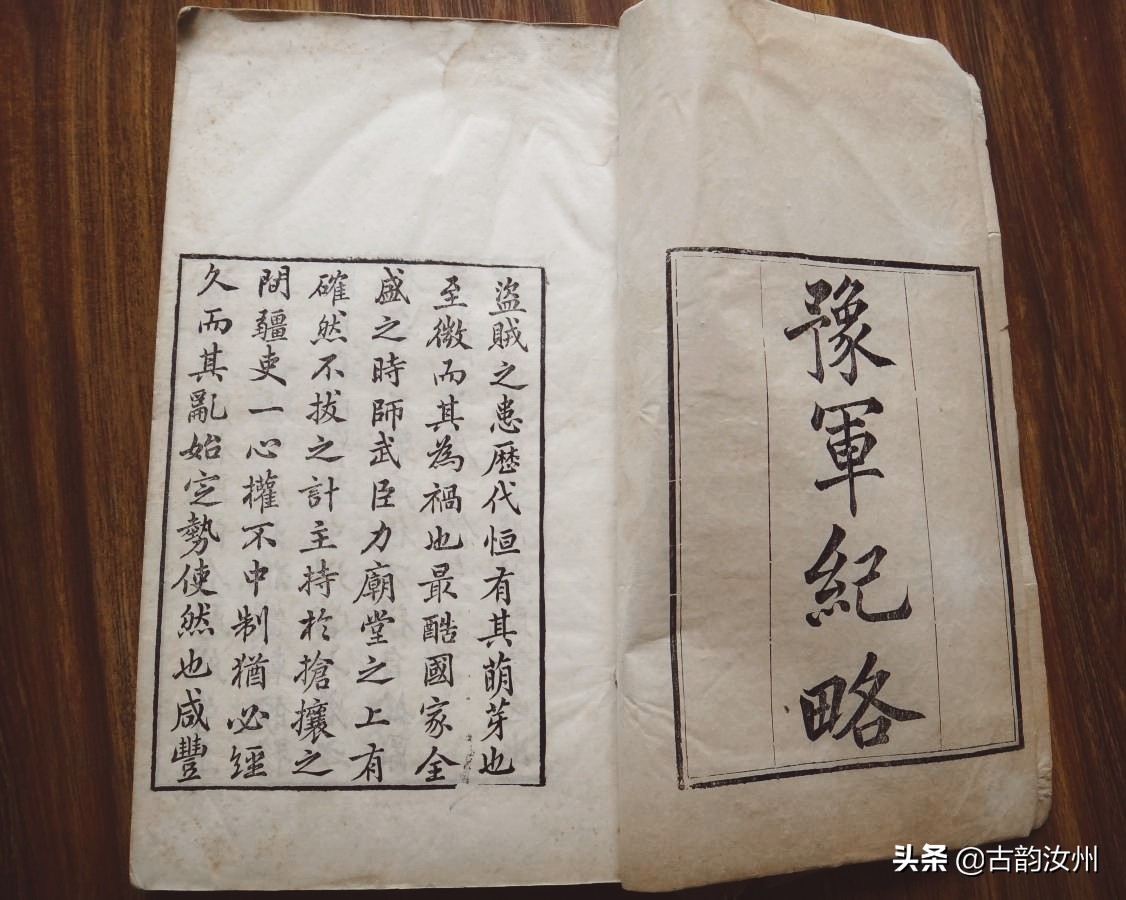 豫軍紀略
盜賊之患歷代恒有其萌芽也
至微而其為禍也最酷國家全
盛之時師武臣力廟堂之上有
確然不拔之計主持於搶攘之
間疆吏一心權不中制猶必經
久而其亂始定勢使然也咸豐
头条 @古韵汝州